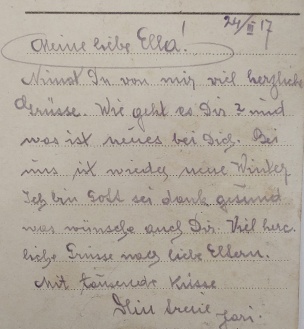 24/III 17
Meine liebe Ella!
Nimst Du von mir viel herzliche
Grüsse. Wie geht es Dir? und
was ist neues bei Dich. Bei
uns ist wieder neue Winter
Ich bin Gott sei dank gesund
was wünsche auch Dir. Viel herz-
liche Grüsse nach liebe Eltern.
Mit tausende Küsse
Dein treue